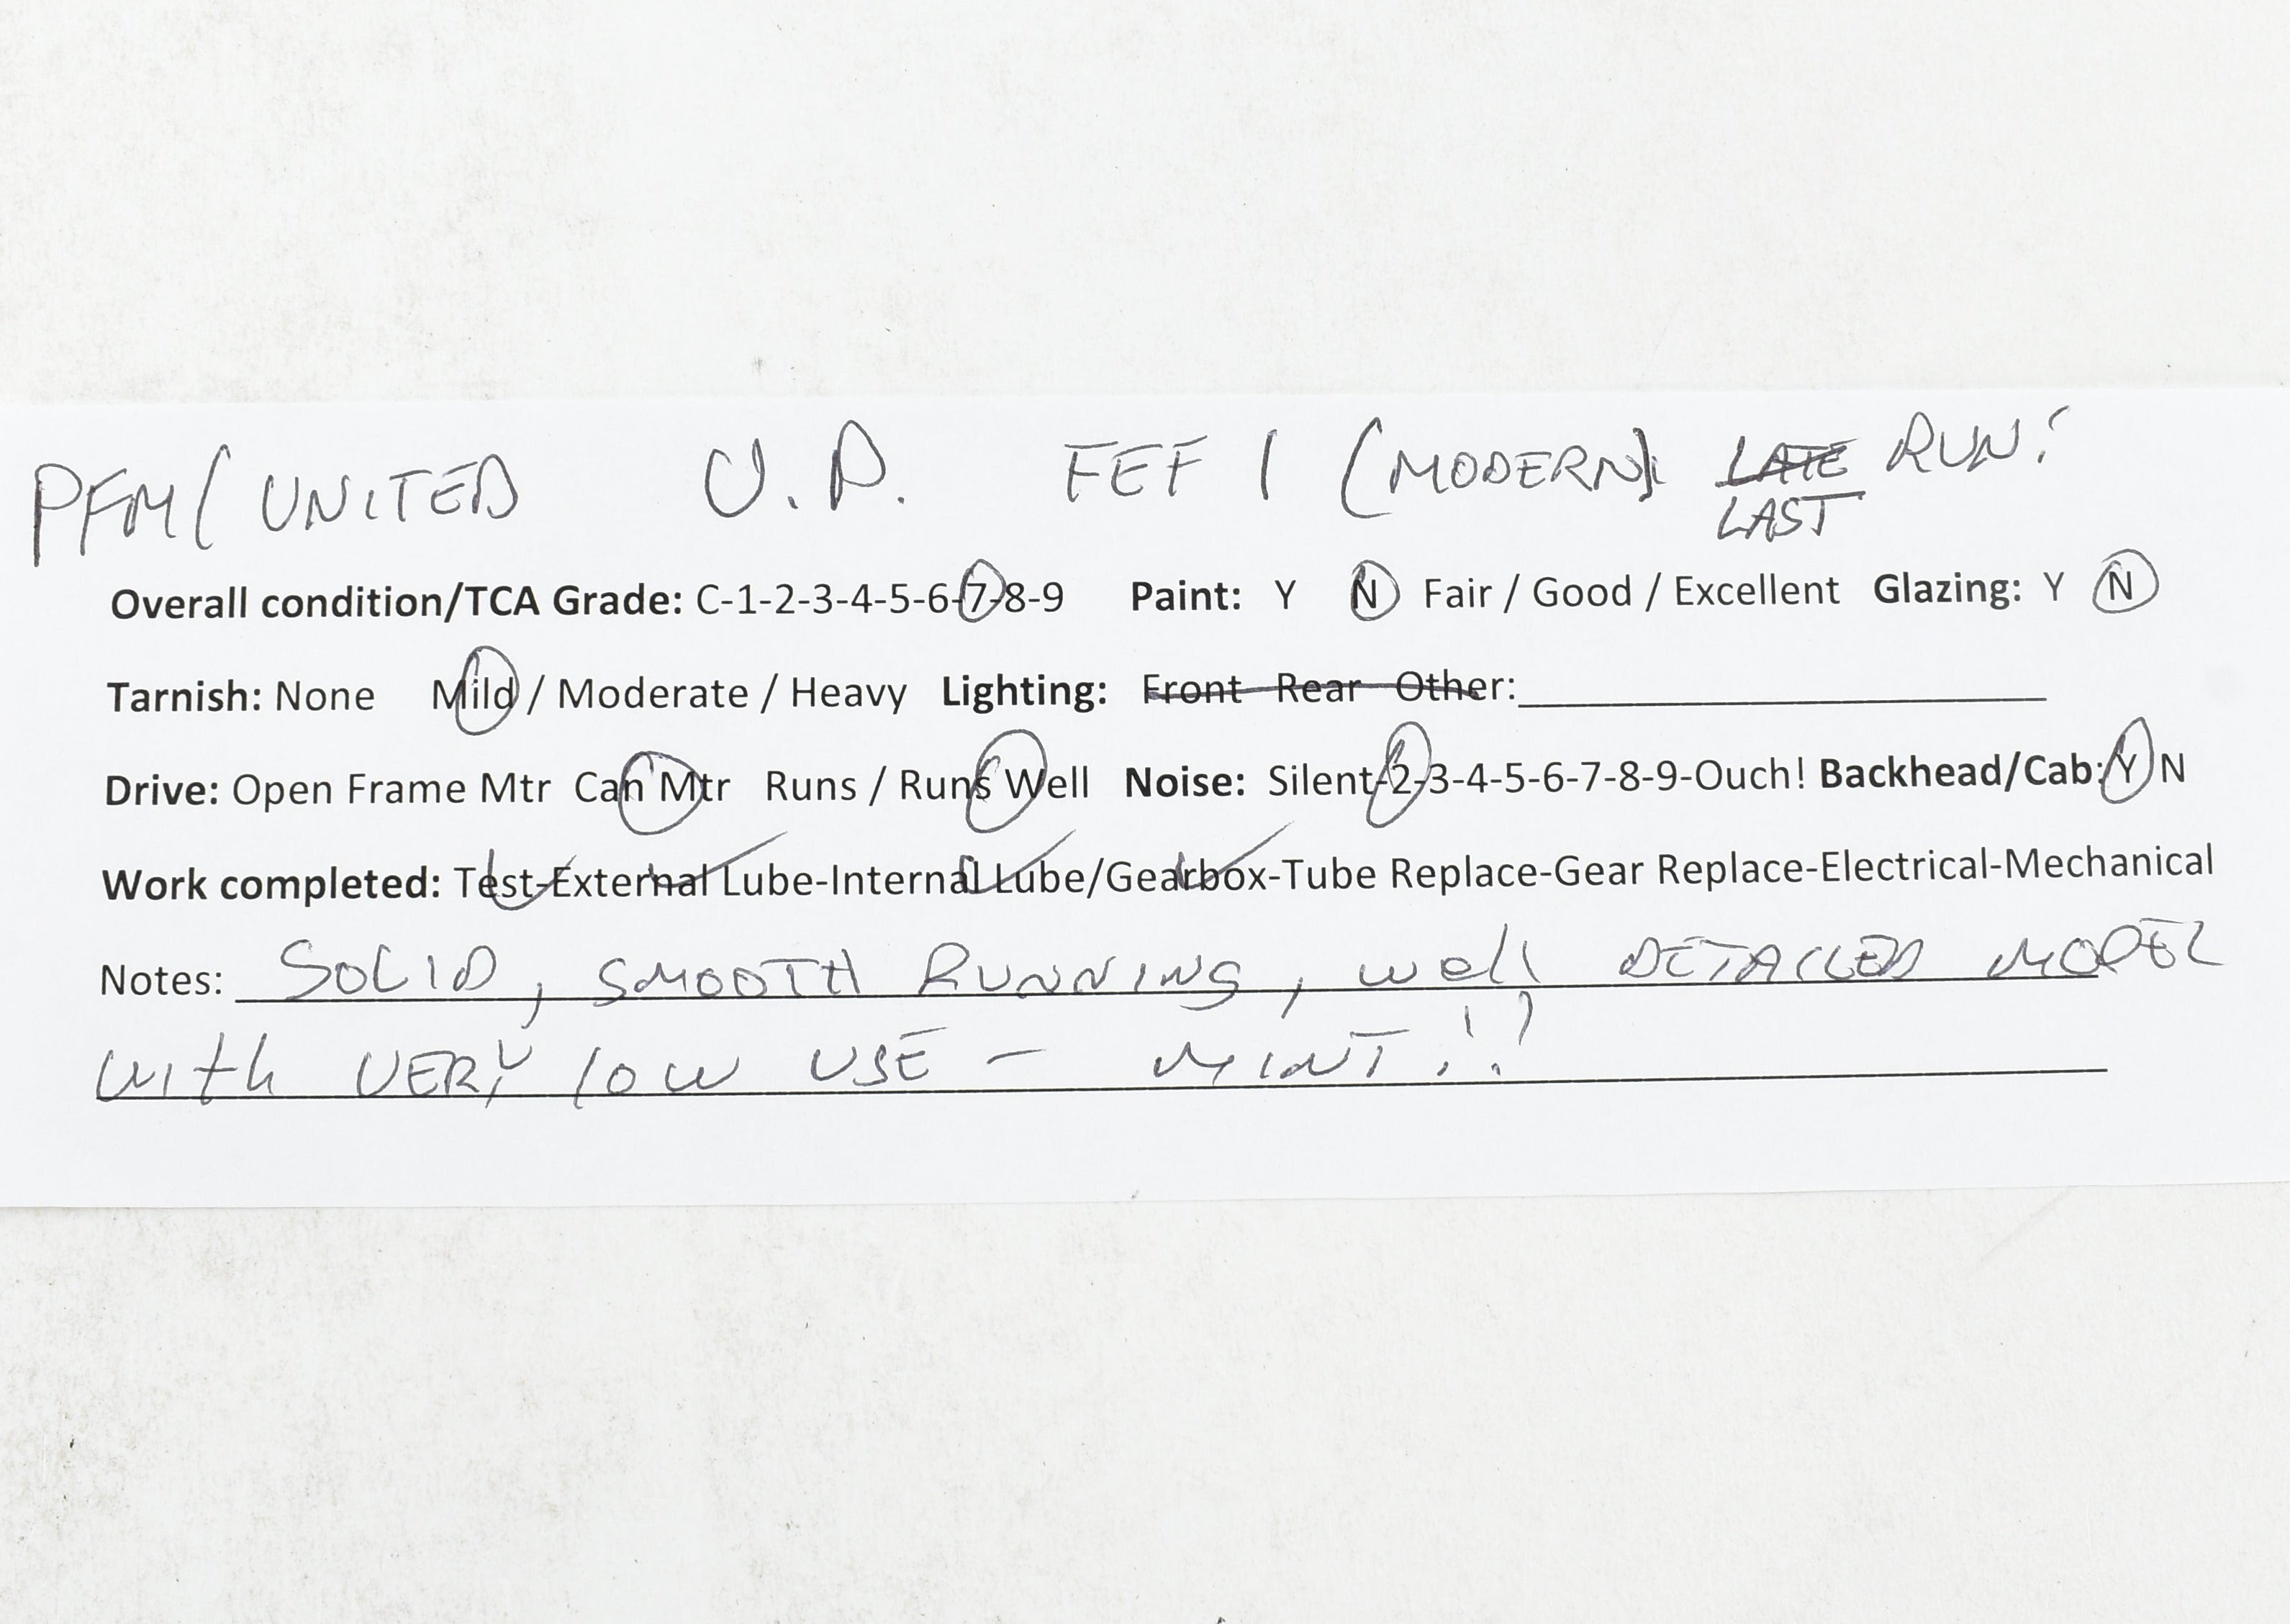 PFM/UNITED U.P. FEF 1 (MODERN) LATE RUN!
LAST
Overall condition/TCA Grade: C-1-2-3-4-5-6-7-8-9 Paint: Y N Fair / Good / Excellent Glazing: Y N
Tarnish: None Mild / Moderate / Heavy Lighting: Front Rear Other:
Drive: Open Frame Mtr Can Mtr Runs / Runs Well Noise: Silent-2-3-4-5-6-7-8-9-Ouch! Backhead/Cab: Y N
Work completed: Test-External Lube-Internal Lube/Gearbox-Tube Replace-Gear Replace-Electrical-Mechanical
Notes: SOLID, SMOOTH RUNNING, well DETAILED MODEL
with VERY low USE - MINT!!